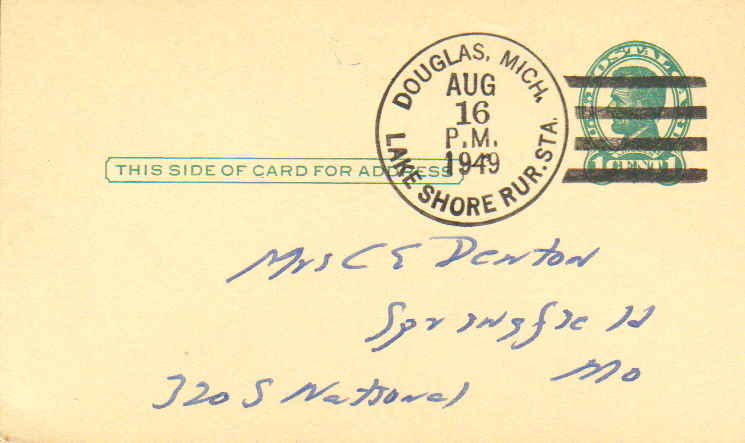 DOUGLAS, MICH.
AUG
16
P.M.
1949
LAKE SHORE RUR. STA.
U.S. POSTAL CARD
1 CENT 1
THIS SIDE OF CARD FOR ADDRESS
Mrs C E Denton
Springfield
Mo
320 S National